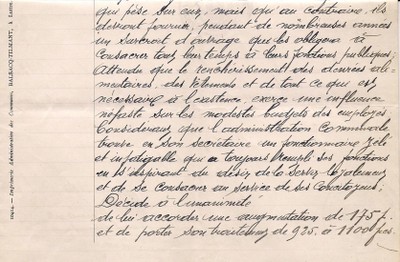 qui pèse sur eux, mais qu'au contraire, ils
devront fournir, pendant de nombreuses années
un surcroit d'ouvrage qui les obligera à
consacrer tout leur temps à leurs fonctions publiques;
Attendu que le renchérissement des denrées ali-
mentaires, des vêtements et de tout ce qui est
nécessaire à l'existence, exerce une influence
néfaste sur les modestes budgets des employés
Considérant que l'administration Communale
trouve en son secrétaire un fonctionnaire zélé
et infatigable qui a toujours rempli ses fonctions
en s'inspirant du désir de la servir loyalement
et de se consacrer au service de ses concitoyens;
Décide à l'unanimité
de lui accorder une augmentation de 175 f.
et de porter son traitement de 925 à 1100 frcs.
Imprimerie Administrative des Communes, BALBACQ-TILMANT, à Luttre.